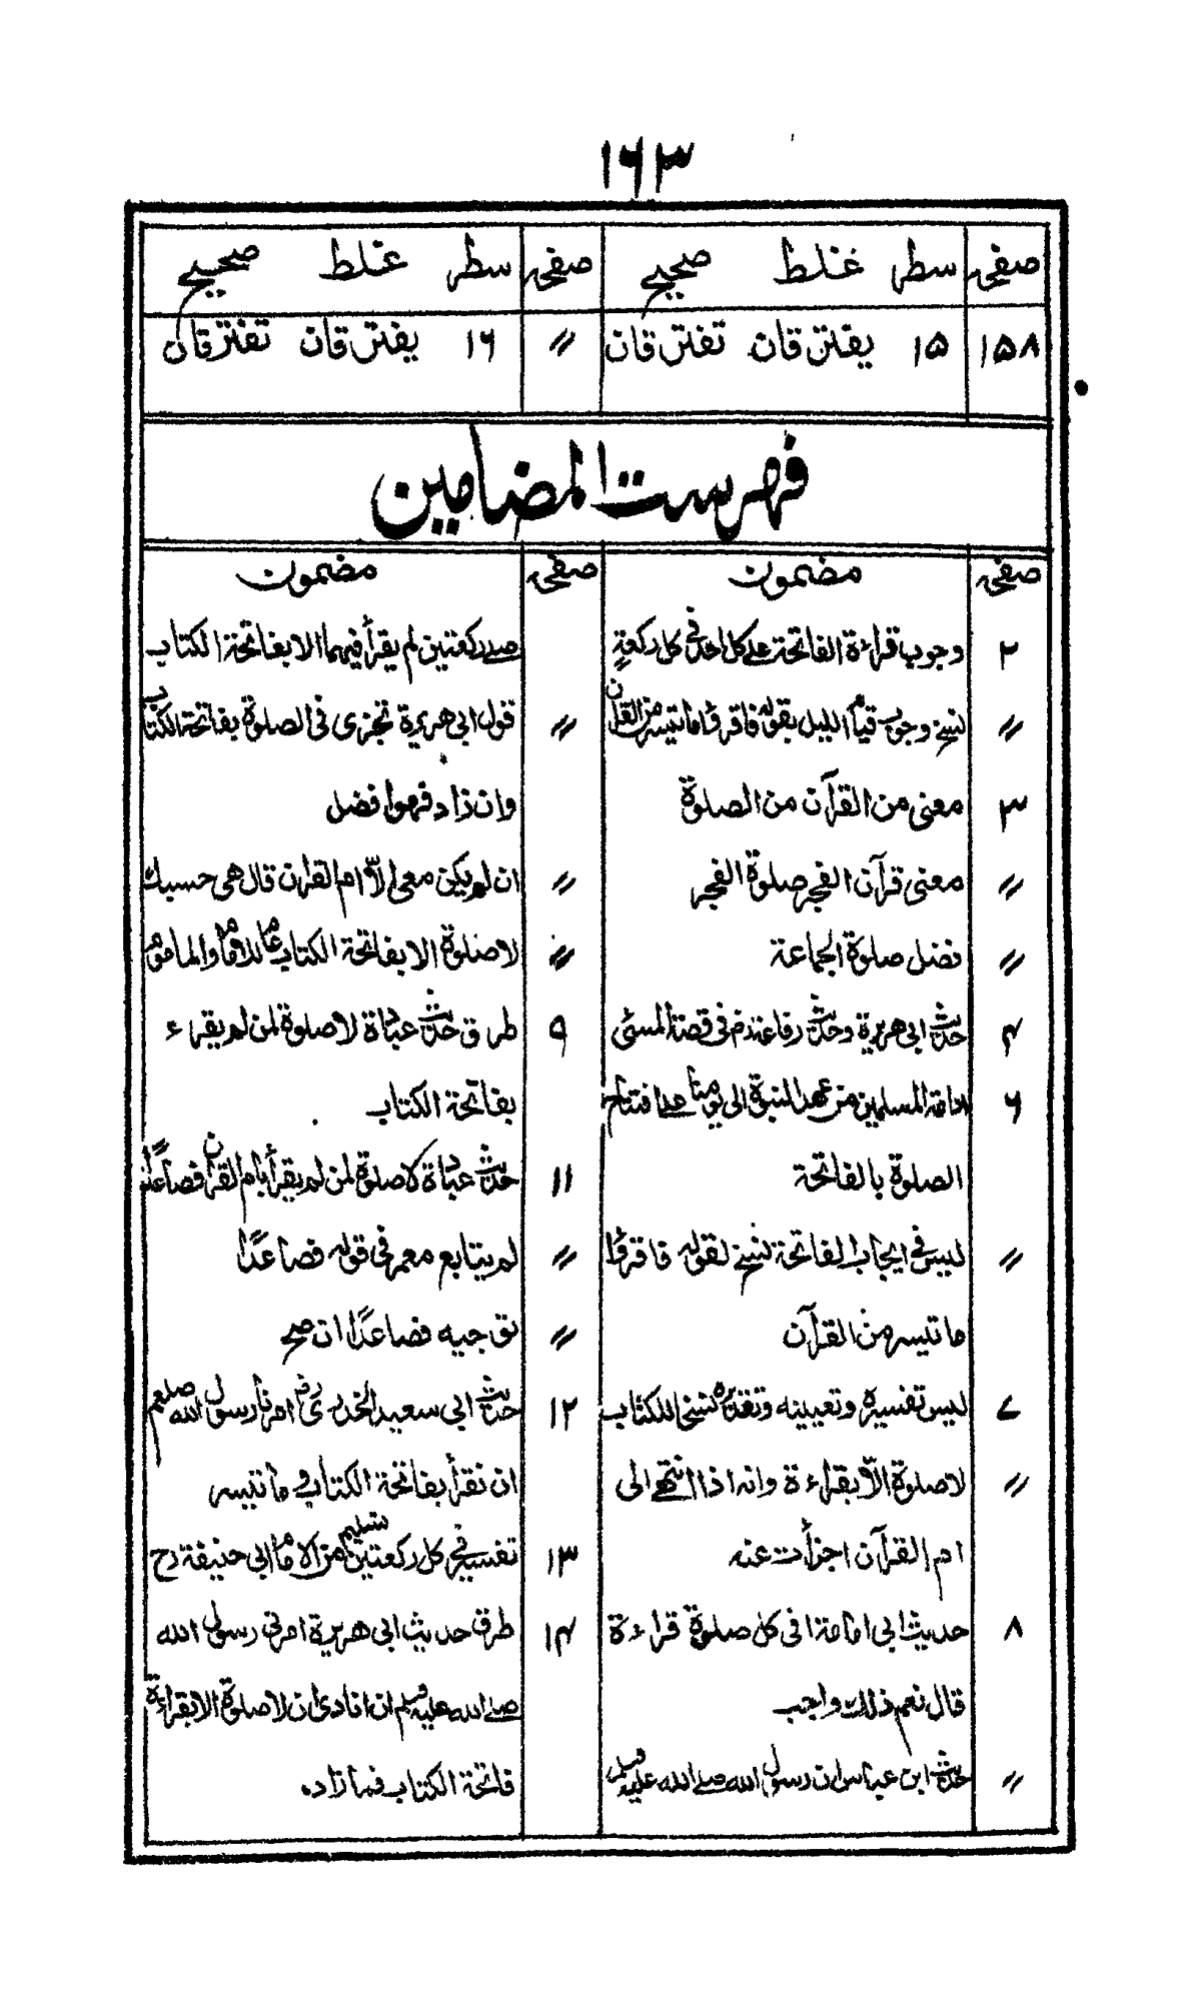 ۱۶۳
صفحہ سطر غلط صحیح صفحہ سطر غلط صحیح
۱۵۸ ۱۵ یفترقان تفترقان 〃 ۱۶ یفترقان تفترقان
فهرست المضامین
صفحہ مضمون
۲ وجوب قراءة الفاتحة علی کل احد فی کل رکعةٍ
〃 نسخ وجوب قیام اللیل بقوله فاقرؤا ما تیسر من القرآن
۳ معنی من القرآن من الصلوة
〃 معنی قرآن الفجر صلوة الفجر
〃 فضل صلوة الجماعة
۴ حدیث ابی هریرة وحدیث رفاعة فی قصة المسئی
۶ عامة المسلمین من عهد النبوة الی یومنا علی افتتاح
الصلوة بالفاتحة
〃 لیس فی ایجاب الفاتحة نسخ لقوله فاقرؤا
ما تیسر من القرآن
۷ لیس تفسیره وتعیینه وتقدیره نسخا للکتاب
〃 لا صلوة الّا بقراءة وانه اذا انتهی الی
ام القرآن اجزأت عنه
۸ حدیث ابی امامة افی کل صلوة قراءة
قال نعم ذلک واجب
〃 حدیث ابن عباس ان رسول الله صلی الله علیه وسلم
صفحہ مضمون
صلی رکعتین لم یقرأ فیهما الا بفاتحة الکتاب
〃 قول ابی هریرة تجزی فی الصلوة بفاتحة الکتاب
وان زاد فهو افضل
〃 ان لم یکن معی الّا ام القرآن قال هی حسبک
〃 لا صلوة الا بفاتحة الکتاب عام للامام والماموم
۹ طرق حدیث عبادة لا صلوة لمن لم یقرء
بفاتحة الکتاب
۱۱ حدیث عبادة لا صلوة لمن لم یقرأ بام القرآن فصاعدًا
〃 لم یتابع معمر فی قوله فصاعدًا
〃 توجیه فصاعدًا ان صح
۱۲ حدیث ابی سعید الخدری رض امرنا رسول الله صلعم
ان نقرأ بفاتحة الکتاب وما تیسر
۱۳ تفسیر فی کل رکعتین تسلیم من الامام ابی حنیفة رح
۱۴ طرق حدیث ابی هریرة امرنی رسول الله
صلی الله علیه وسلم ان انادی ان لا صلوة الا بقراءة
فاتحة الکتاب فما زاده